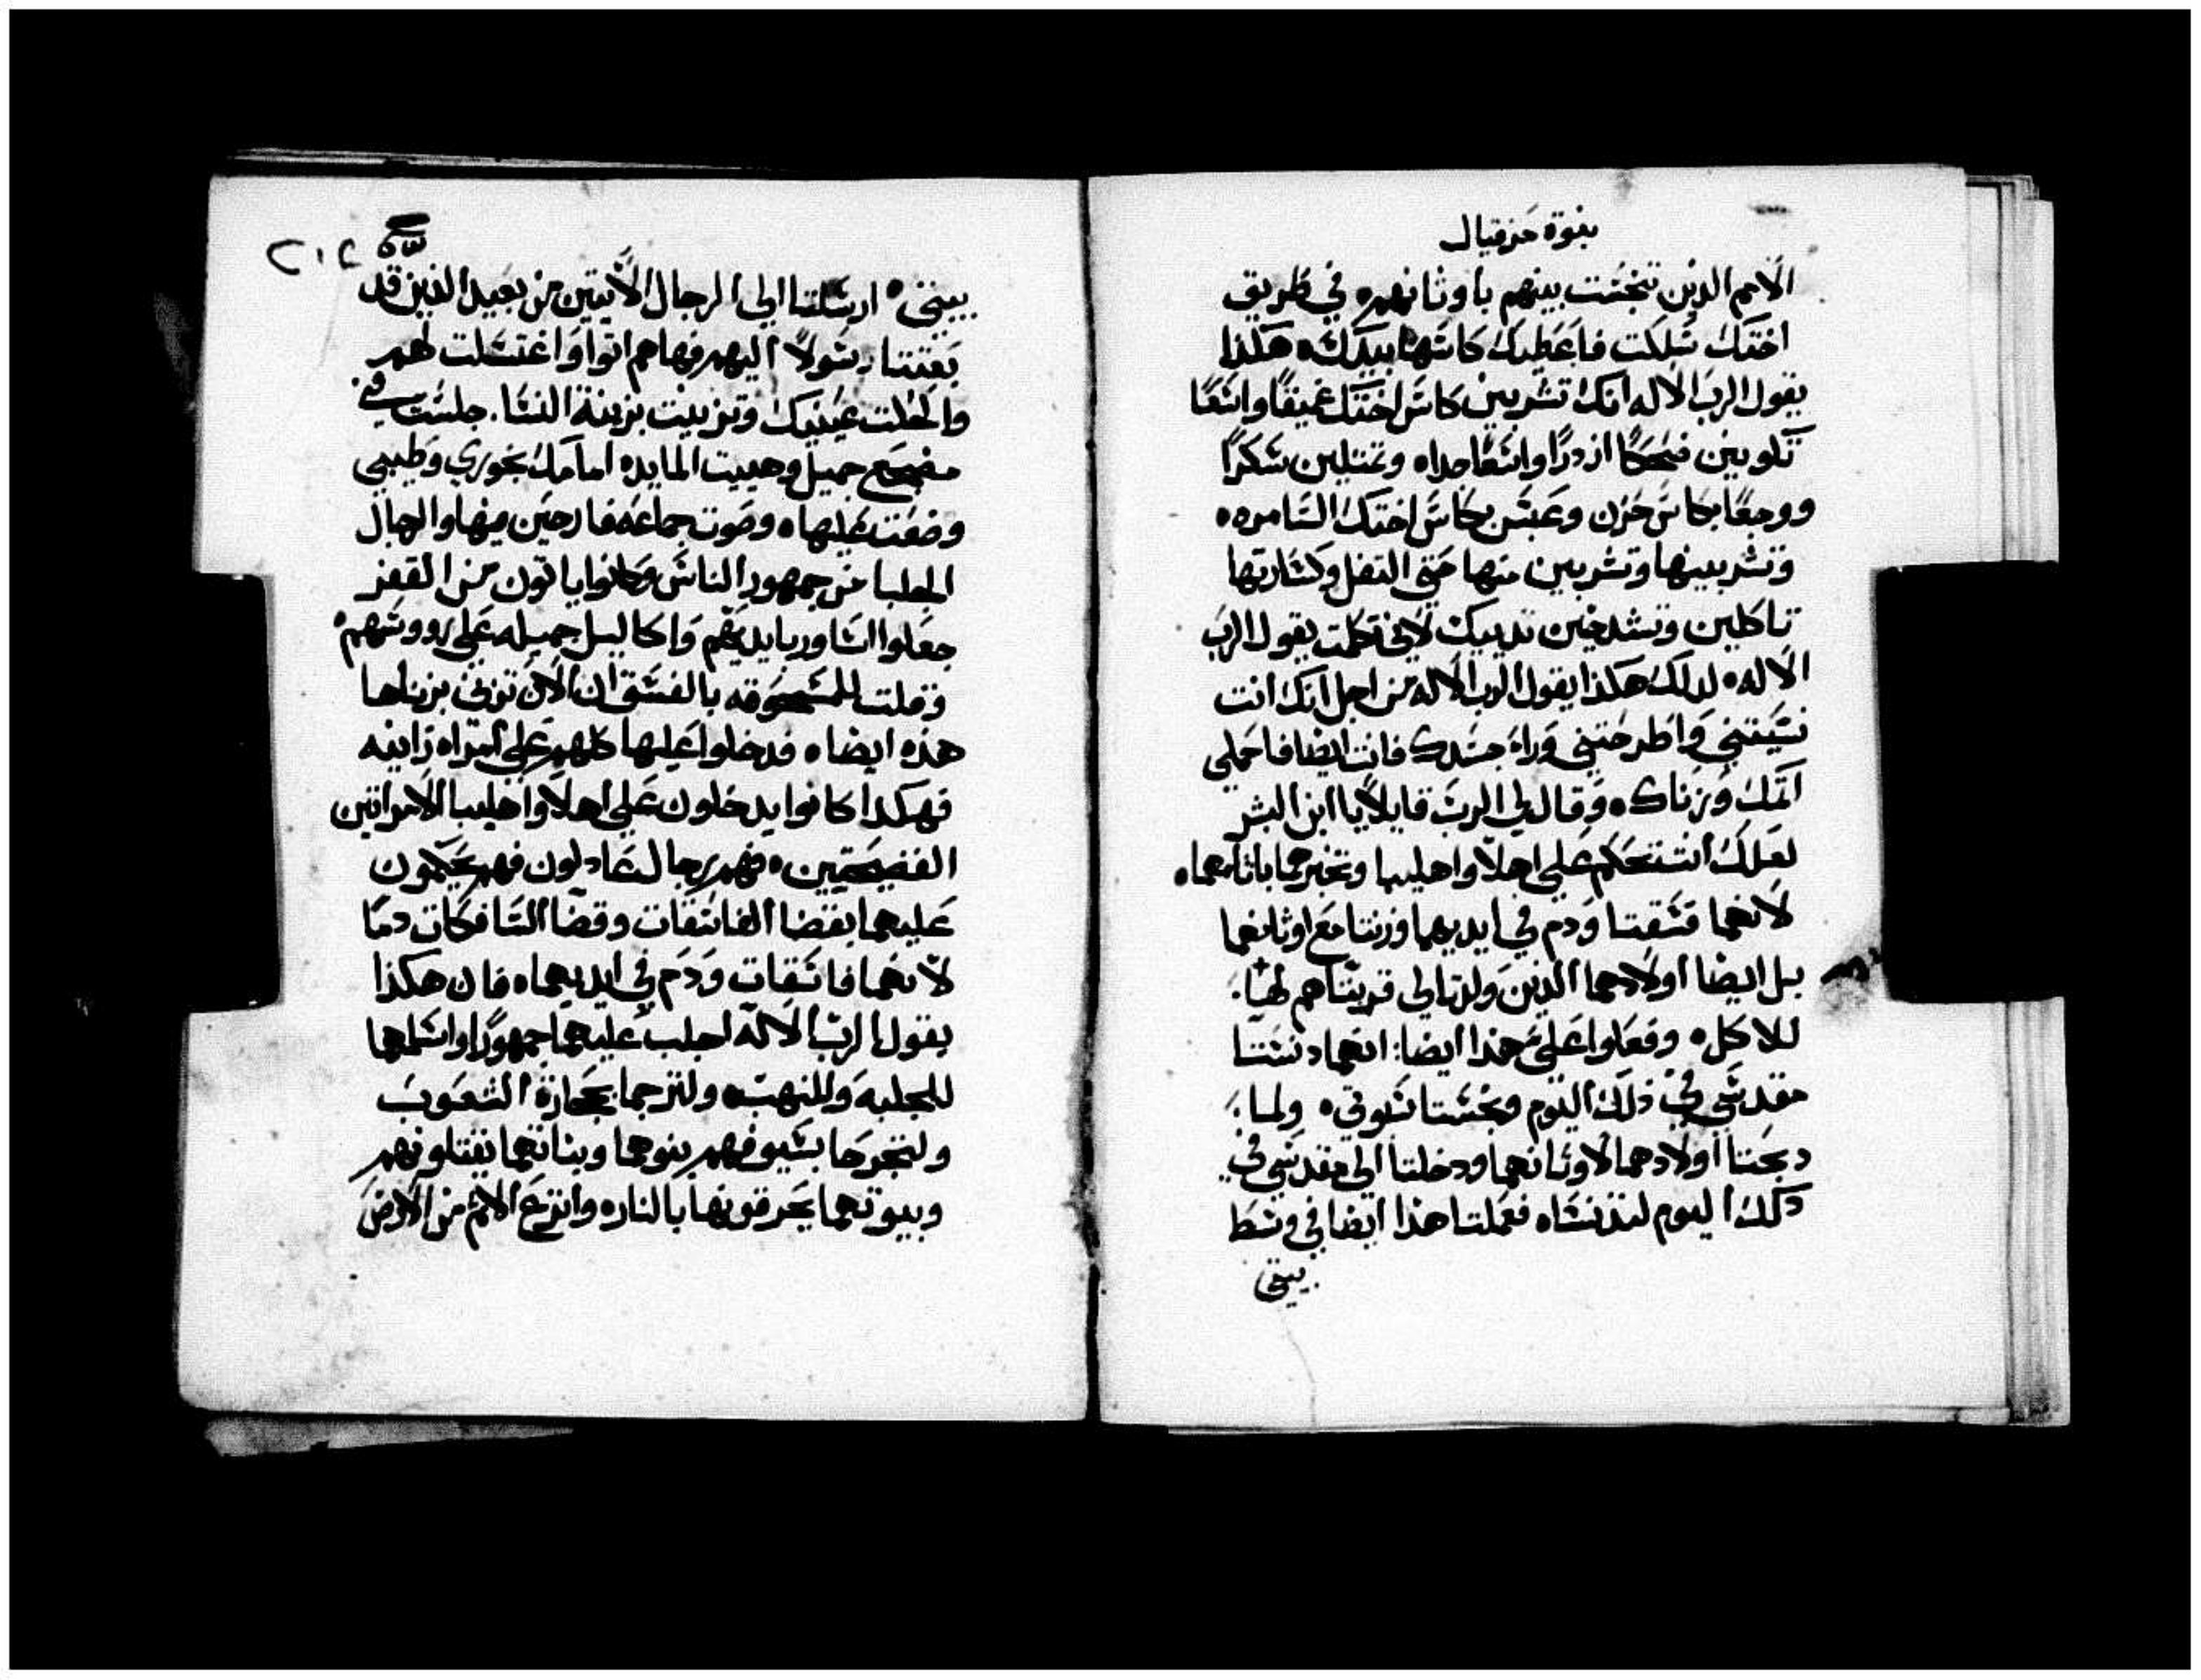 نبوة حزقيال
الامم الدين تنجست بينهم باوثانهم ه في طريق
اختك سلكت فاعطيك كاسها بيدك ه هكذا
يقول الرب الاله انك تشربين كاس اختك عميقا واسعا
تكونين ضحكا ازدرا واسعا جدا ه وتمتلين سكرا
ووجعا بكاس حزن وعبس بكاس اختك السامره ه
وتشربينها وتشربين منها حتي التفل وكسارتها
تاكلين وتشدخين تدييك لاني تكلمت يقول الرب
الاله ه لدلك هكذا يقول الرب الاله من اجل انك انت
نسيتني واطرحتني ورا جسدك فانت ايضا فاحملي
اتمك وزناك ه وقال لي الرب قايلا يا ابن البشر
لعلك انت تحكم علي اهلا واهليبا وتخبرهما باثامهما ه
لانهما فسقتا ودم في ايديهما وزنتا مع اوثانهما
بل ايضا اولادهما الدين ولدتا لي قربتاهم لها
للاكل ه وفعلوا علي هذا ايضا: انهما دنستا
مقدسي في ذلك اليوم ونجستا سبوتي ه ولما
دبحتا اولادهما لاوثانهما ودخلتا الي مقدسي في
دلك اليوم لتدنساه فعملتا هذا ايضا في وسط
بيتي
٢١٤
بيتي ه ارسلتا الي الرجال الاتيين من بعيد الذين قد
بعثتا رسولا اليهم فهاهم اتوا واغتسلت لهم
واكحلت عينيك وتزينت بزينة النسا. جلست في
مضجع جميل وهييت المايده امامك بخوري وطيبي
وضعت عليها ه وصوت جماعه فارحين فيها والرجال
المجلبا من جمهور الناس وكانوا ياتون من القفز
جعلوا اساور بايديهم واكاليل جميله علي رووسهم ه
وقلت للمسحوقه بالفسق ان الان تزني بزناها
هذه ايضا ه فدخلوا عليها كلهم علي امراه زانيه
فهكدا كانوا يدخلون علي اهلا واهليبا الامراتين
الفضيحتين ه فهم رجال عادلون فهم يحكمون
عليهما بقضا الفاسقات وقضا السافكات دما
لانهما فاسقات ودم في ايديهما ه فان هكذا
يقول الرب الاله اجلب عليهما جمهورا واسلمهما
للجلبه وللنهب ه ولترجما بحجارة الشعوب
ولتجرحا بسيوفهم بنوهما وبناتهما يقتلونهم
وبيوتهما يحرقونها بالنار ه وانزع الاثم من الارض